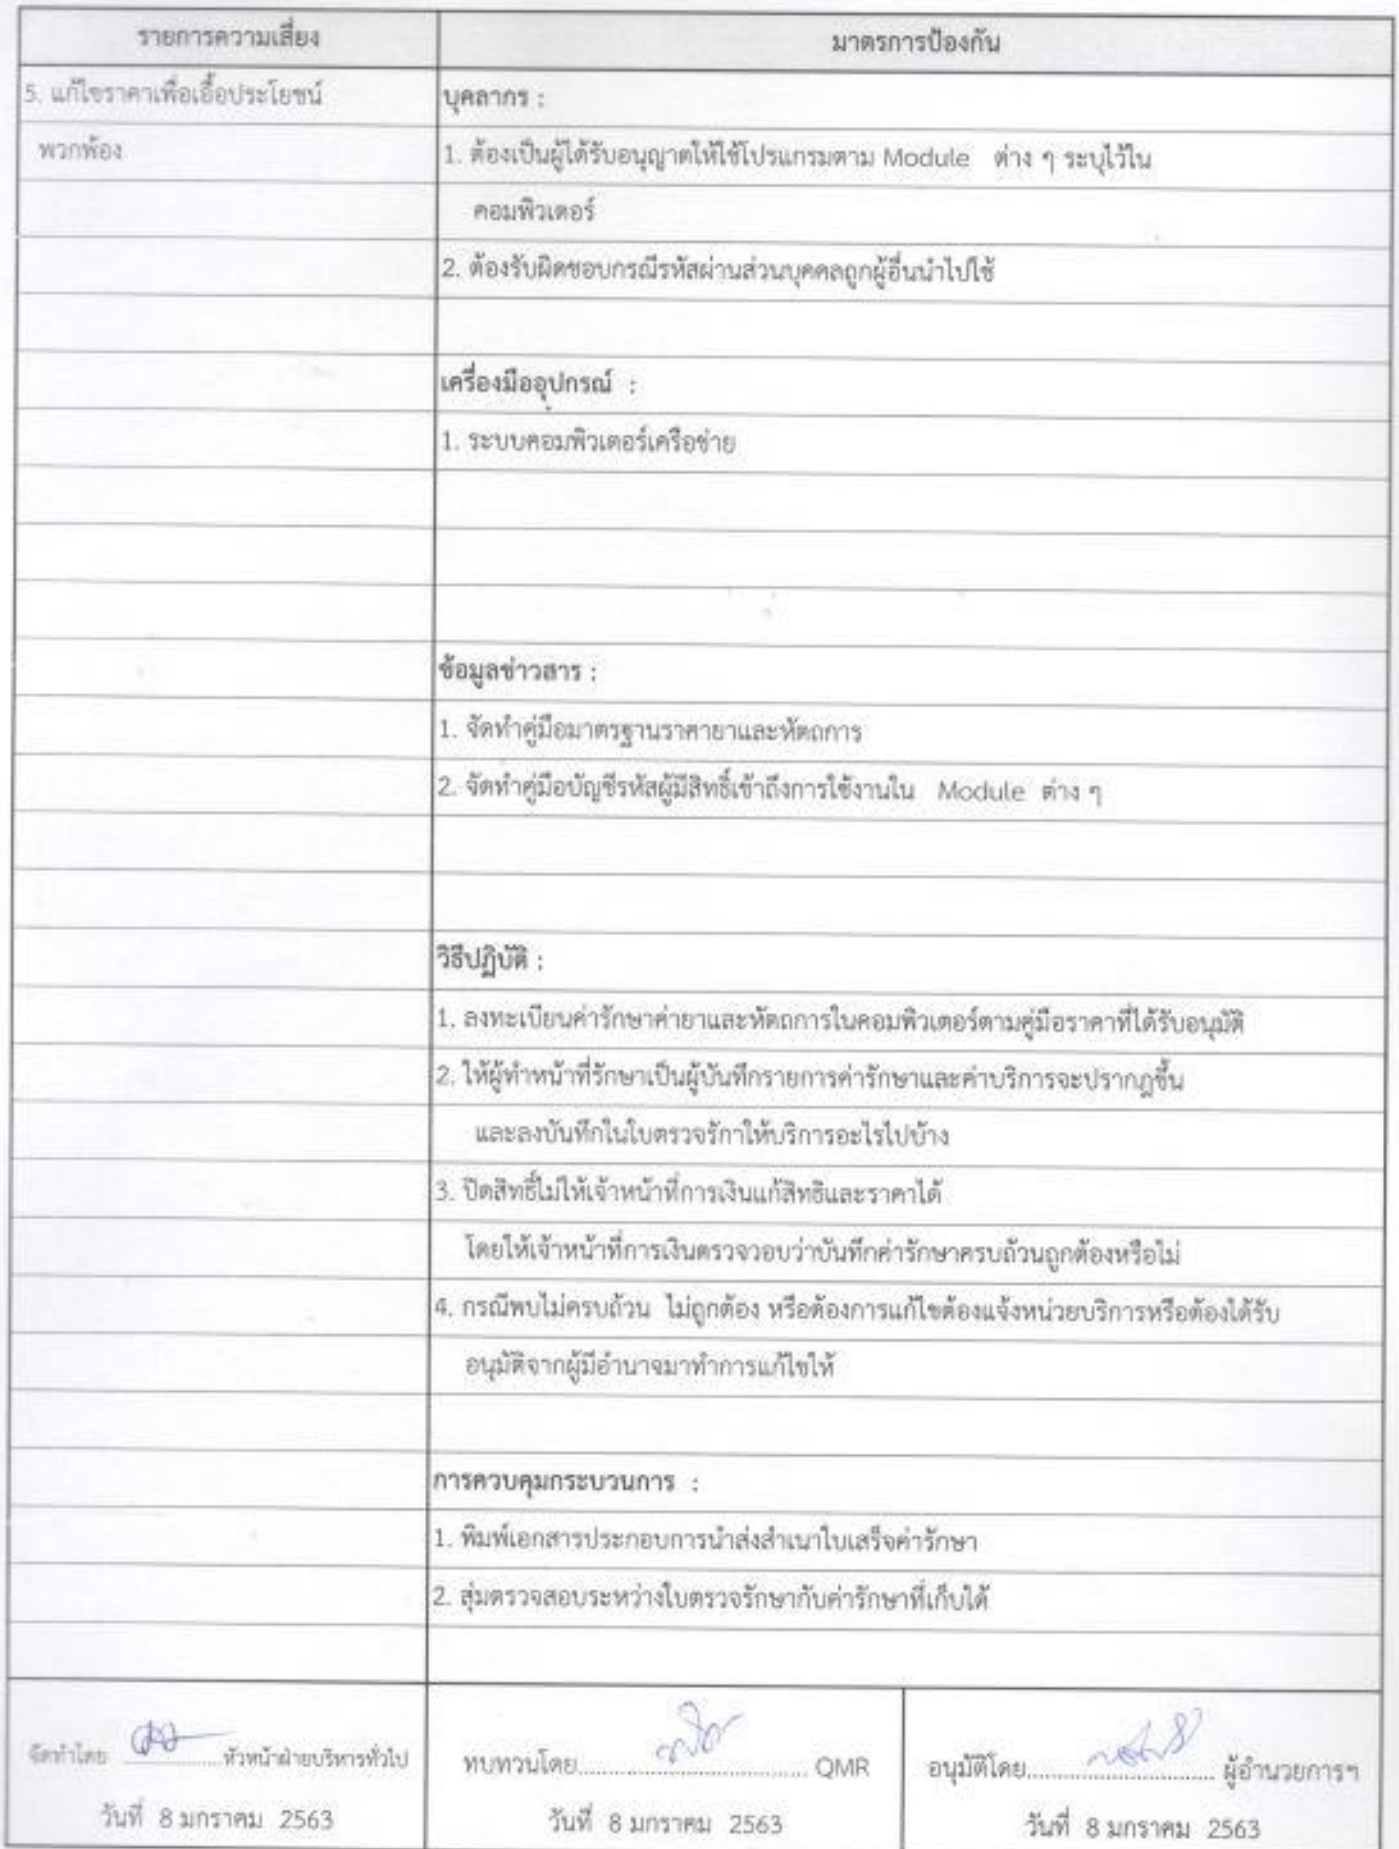 รายการความเสี่ยง
มาตรการป้องกัน
5. แก้ไขราคาเพื่อเอื้อประโยชน์
พวกพ้อง
บุคลากร :
1. ต้องเป็นผู้ได้รับอนุญาตให้ใช้โปรแกรมตาม Module ต่าง ๆ ระบุไว้ใน
คอมพิวเตอร์
2. ต้องรับผิดชอบกรณีรหัสผ่านส่วนบุคคลถูกผู้อื่นนำไปใช้
เครื่องมืออุปกรณ์ :
1. ระบบคอมพิวเตอร์เครือข่าย
ข้อมูลข่าวสาร :
1. จัดทำคู่มือมาตรฐานราคายาและหัตถการ
2. จัดทำคู่มือบัญชีรหัสผู้มีสิทธิ์เข้าถึงการใช้งานใน Module ต่าง ๆ
วิธีปฏิบัติ :
1. ลงทะเบียนค่ารักษาค่ายาและหัตถการในคอมพิวเตอร์ตามคู่มือราคาที่ได้รับอนุมัติ
2. ให้ผู้ทำหน้าที่รักษาเป็นผู้บันทึกรายการค่ารักษาและค่าบริการจะปรากฎขึ้น
และลงบันทึกในใบตรวจรักาให้บริการอะไรไปบ้าง
3. ปิดสิทธิ์ไม่ให้เจ้าหน้าที่การเงินแก้สิทธิและราคาได้
โดยให้เจ้าหน้าที่การเงินตรวจวอบว่าบันทึกค่ารักษาครบถ้วนถูกต้องหรือไม่
4. กรณีพบไม่ครบถ้วน ไม่ถูกต้อง หรือต้องการแก้ไขต้องแจ้งหน่วยบริการหรือต้องได้รับ
อนุมัติจากผู้มีอำนาจมาทำการแก้ไขให้
การควบคุมกระบวนการ :
1. พิมพ์เอกสารประกอบการนำส่งสำเนาใบเสร็จค่ารักษา
2. สุ่มตรวจสอบระหว่างใบตรวจรักษากับค่ารักษาที่เก็บได้
จัดทำโดย ............หัวหน้าฝ่ายบริหารทั่วไป
วันที่ 8 มกราคม 2563
ทบทวนโดย............ QMR
วันที่ 8 มกราคม 2563
อนุมัติโดย............ ผู้อำนวยการฯ
วันที่ 8 มกราคม 2563